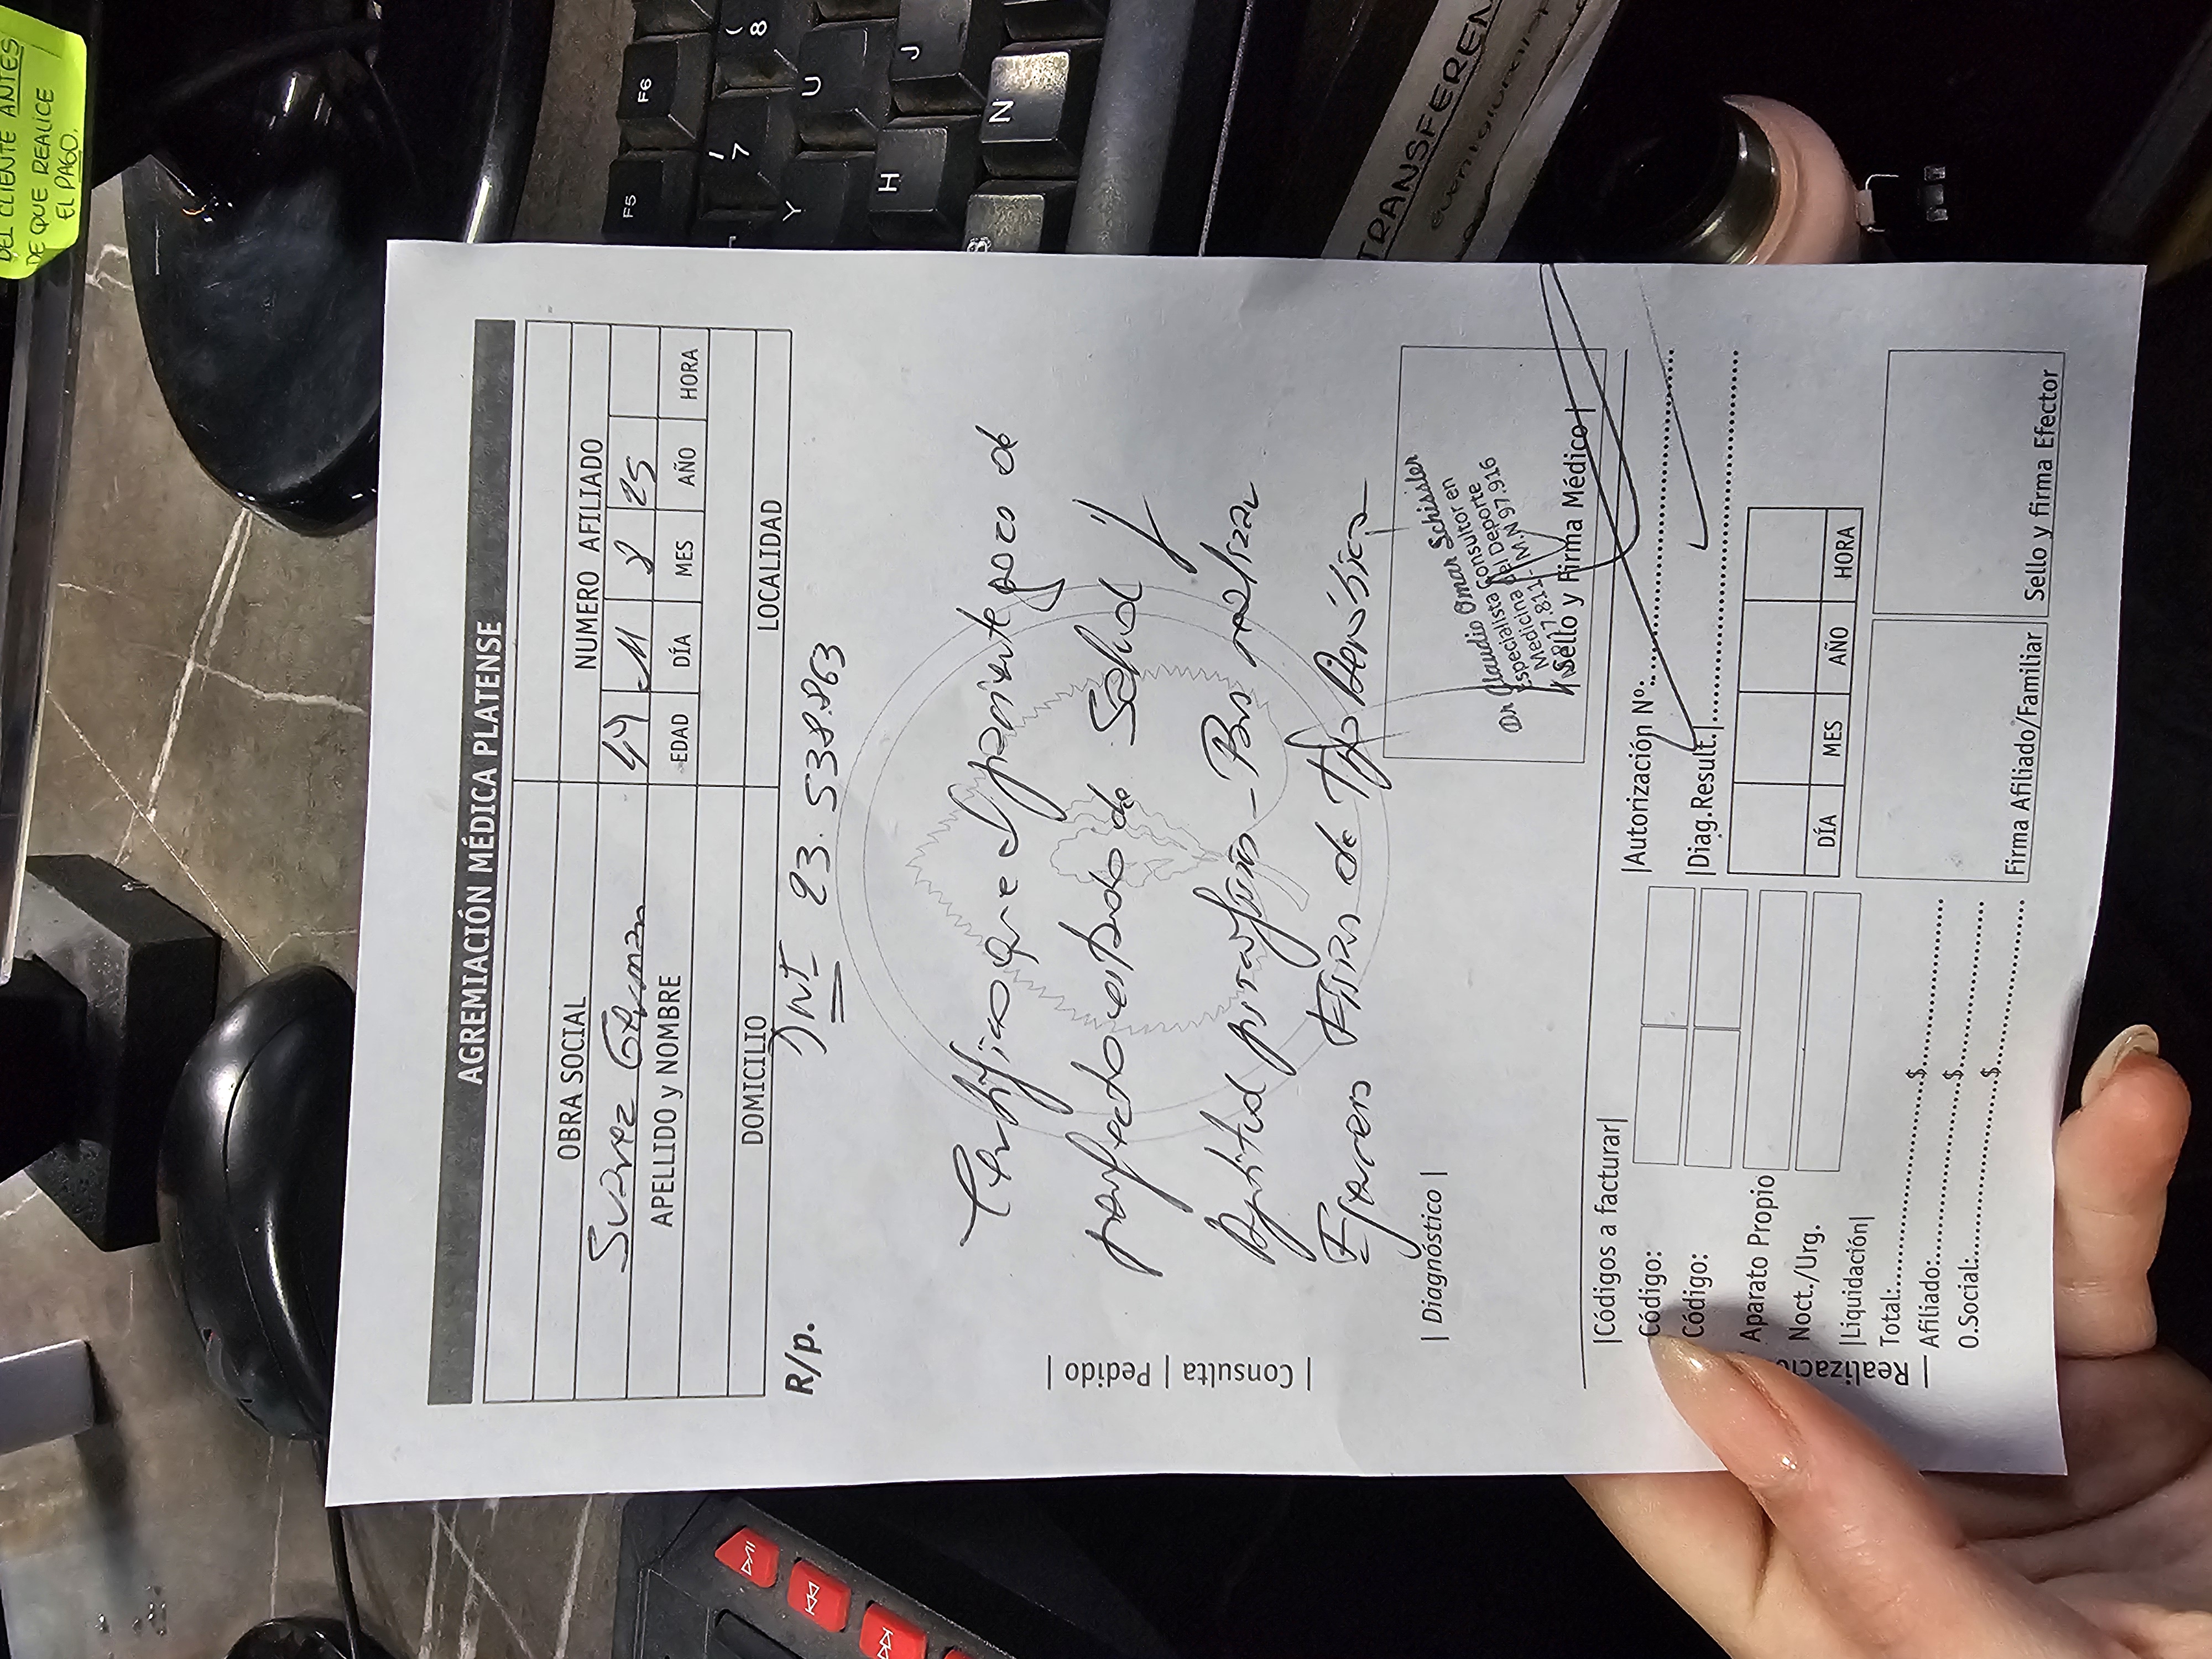 DEL CLIENTE ANTES
DE QUE REALICE
EL PAGO.
F5
F6
7
8
Y
U
H
J
B
N
TRANSFEREN
AGREMIACIÓN MÉDICA PLATENSE
OBRA SOCIAL
NUMERO AFILIADO
Suarez German
49 11 8 25
APELLIDO y NOMBRE
EDAD DÍA MES AÑO HORA
DOMICILIO
LOCALIDAD
R/p.
DNI 23.538.863
Certifico que el paciente goza de
perfecto estado de Salud y
Aptitud psicofísica - Para realizar
Ejercicios Físicos de Tipo Aeróbico
| Consulta | Pedido |
Dr Claudio Omar Schissler
Especialista Consultor en
Medicina del Deporte
M.N 97.916
|Sello y Firma Médico|
| Diagnóstico |
|Códigos a facturar|
Código:
Código:
Aparato Propio
Noct./Urg.
|Liquidación|
Total:...............$
Afiliado:...............$
O.Social:...............$
|Autorización Nº:
|Diag.Result.|
DÍA MES AÑO HORA
Firma Afiliado/Familiar
Sello y firma Efector